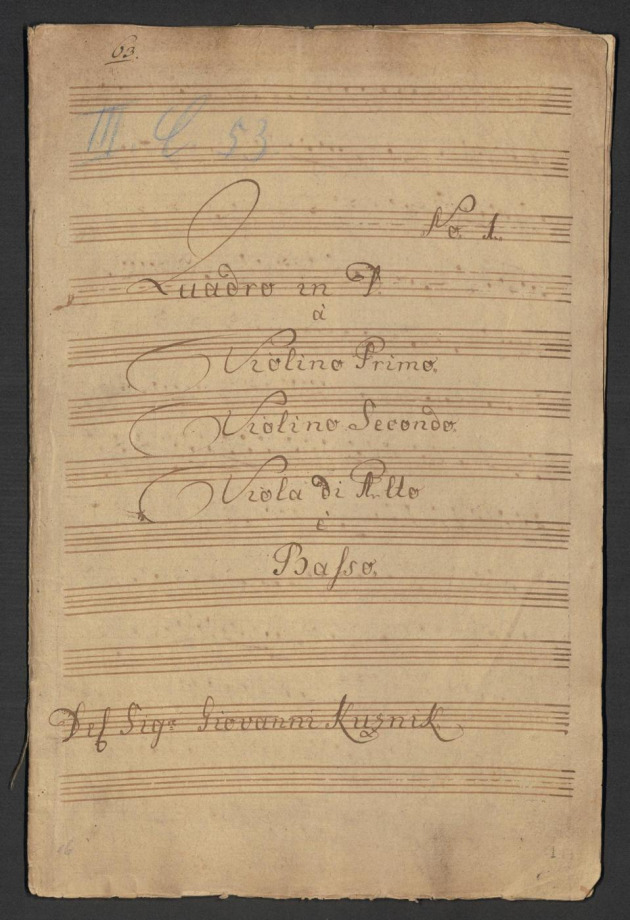 63.
III C 53
No 1.
Quadro in D
à
Violino Primo.
Violino Secondo.
Viola di Alto
è
Basso.
Del Sigr Giovanni Kuznik